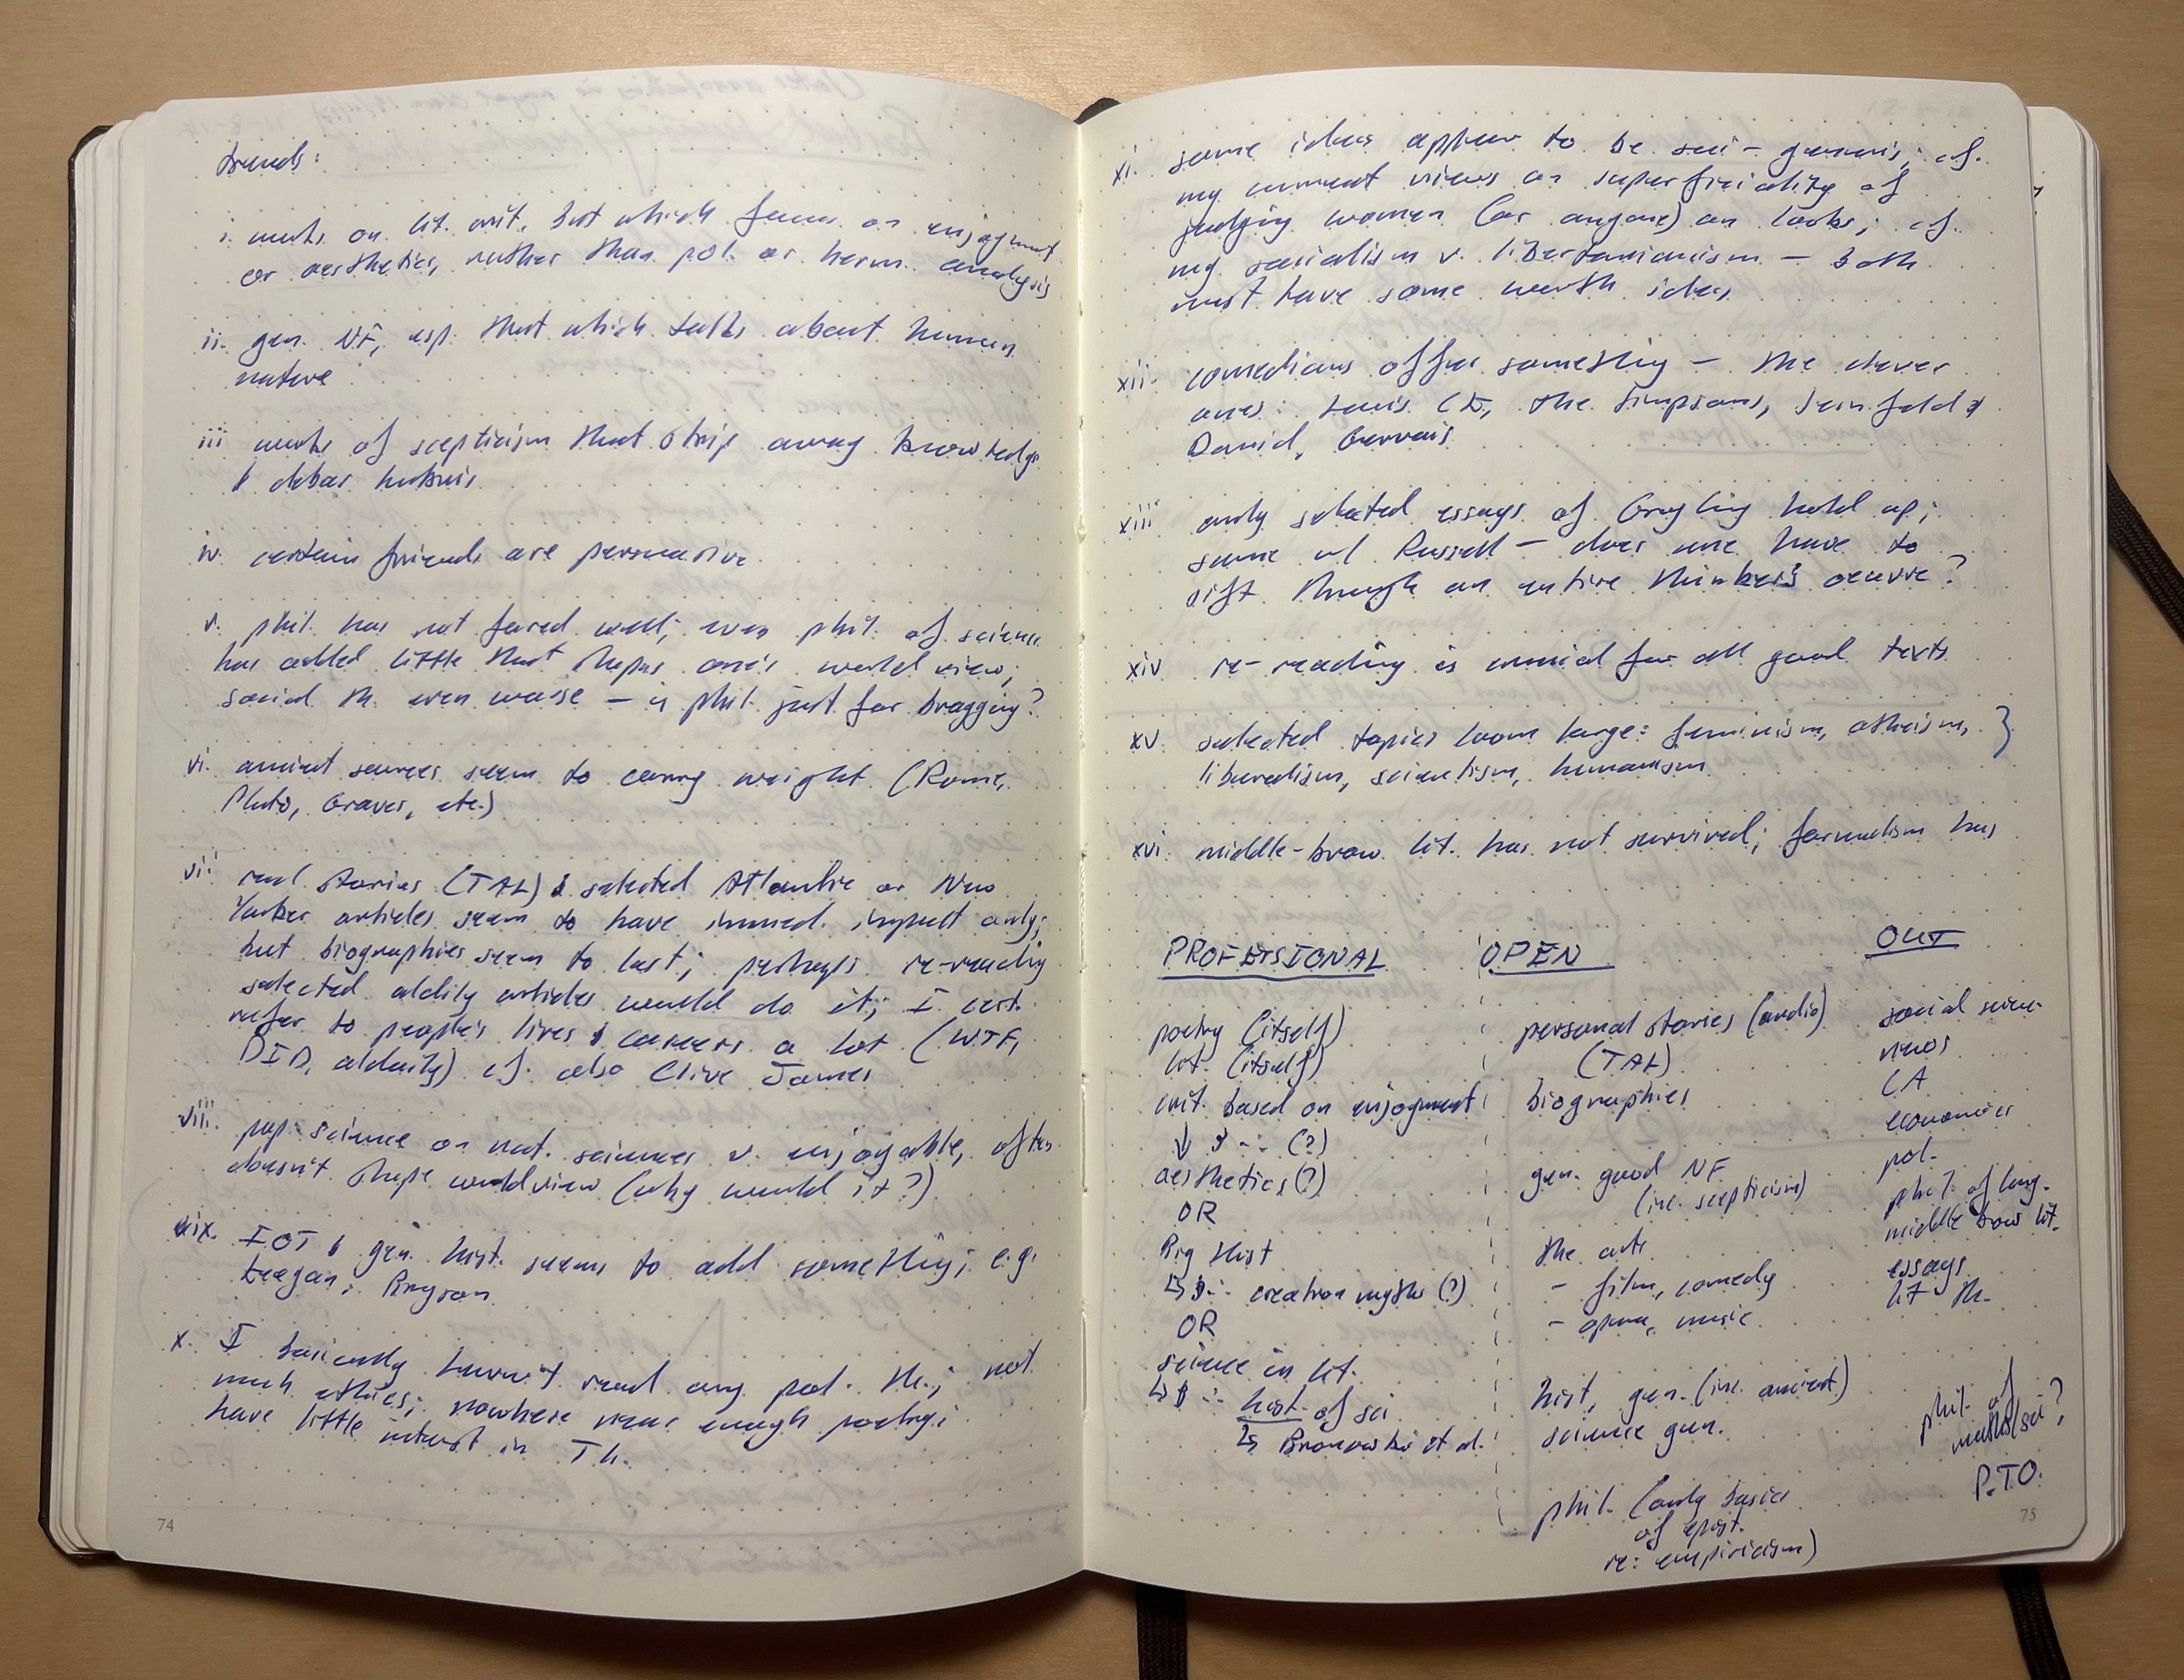 trends:
i. works on lit. crit. but which focus on enjoyment
or aesthetics, rather than pol. or herm. analysis
ii. gen. NF, esp. that which talks about human
nature
iii works of scepticism that strip away knowledge
& debar hubris
iv. certain friends are persuasive
v. phil. has not fared well; even phil. of science
has added little that shapes one's world view;
social th. even worse – is phil. just for bragging?
vi. ancient sources seem to carry weight (Rome,
Pluto, Graves, etc.)
vii real stories (TAL) & selected Atlantic or New
Yorker articles seem to have immed. impact only;
but biographies seem to last; perhaps re-reading
selected aldily articles would do it; I cert.
refer to people's lives & careers a lot (WTF,
DID, aldaily) cf. also Clive James
viii. pop. science or nat. sciences v. enjoyable, often
doesn't shape worldview (why would it?)
ix. IOT & gen. hist. seems to add something; e.g.
Keegan; Bryson
x. I basically haven't read any pol. th.; not
much ethics; nowhere near enough poetry;
have little interest in Th.
74
xi. some ideas appear to be sui-generis; cf.
my current views on superficiality of
judging women (or anyone) on looks; cf.
my socialism v. libertarianism – both
must have some worth ideas
xii. comedians offer something – the clever
ones: Louis CK, the Simpsons, Seinfeld &
David, Gervais
xiii only selected essays of Grayling hold up;
same w/ Russell – does one have to
sift through an entire thinker's oeuvre?
xiv re-reading is crucial for all good texts
xv. selected topics loom large: feminism, atheism, }
liberalism, scientism, humanism
xvi. middle-brow lit. has not survived; formalism has
PROFESSIONAL
poetry (itself)
lit. (itself)
crit. based on enjoyment
↓ & ∴ (?)
aesthetics (?)
OR
Big Hist
↳ & ∴ creation myths (?)
OR
science in lit.
↳ & ∴ hist. of sci
↳ Bronowski et al.
OPEN
personal stories (audio)
(TAL)
biographies
gen. good NF
(inc. scepticism)
the arts
- film, comedy
- opera, music
hist, gen. (inc. ancient)
science gen.
phil. (only basics
of epist.
re: empiricism)
OUT
social scien.
news
CA
economics
pol.
phil. of lang.
middle brow lit.
essays
lit th.
phil. of
maths/sci?
P.T.O.
75